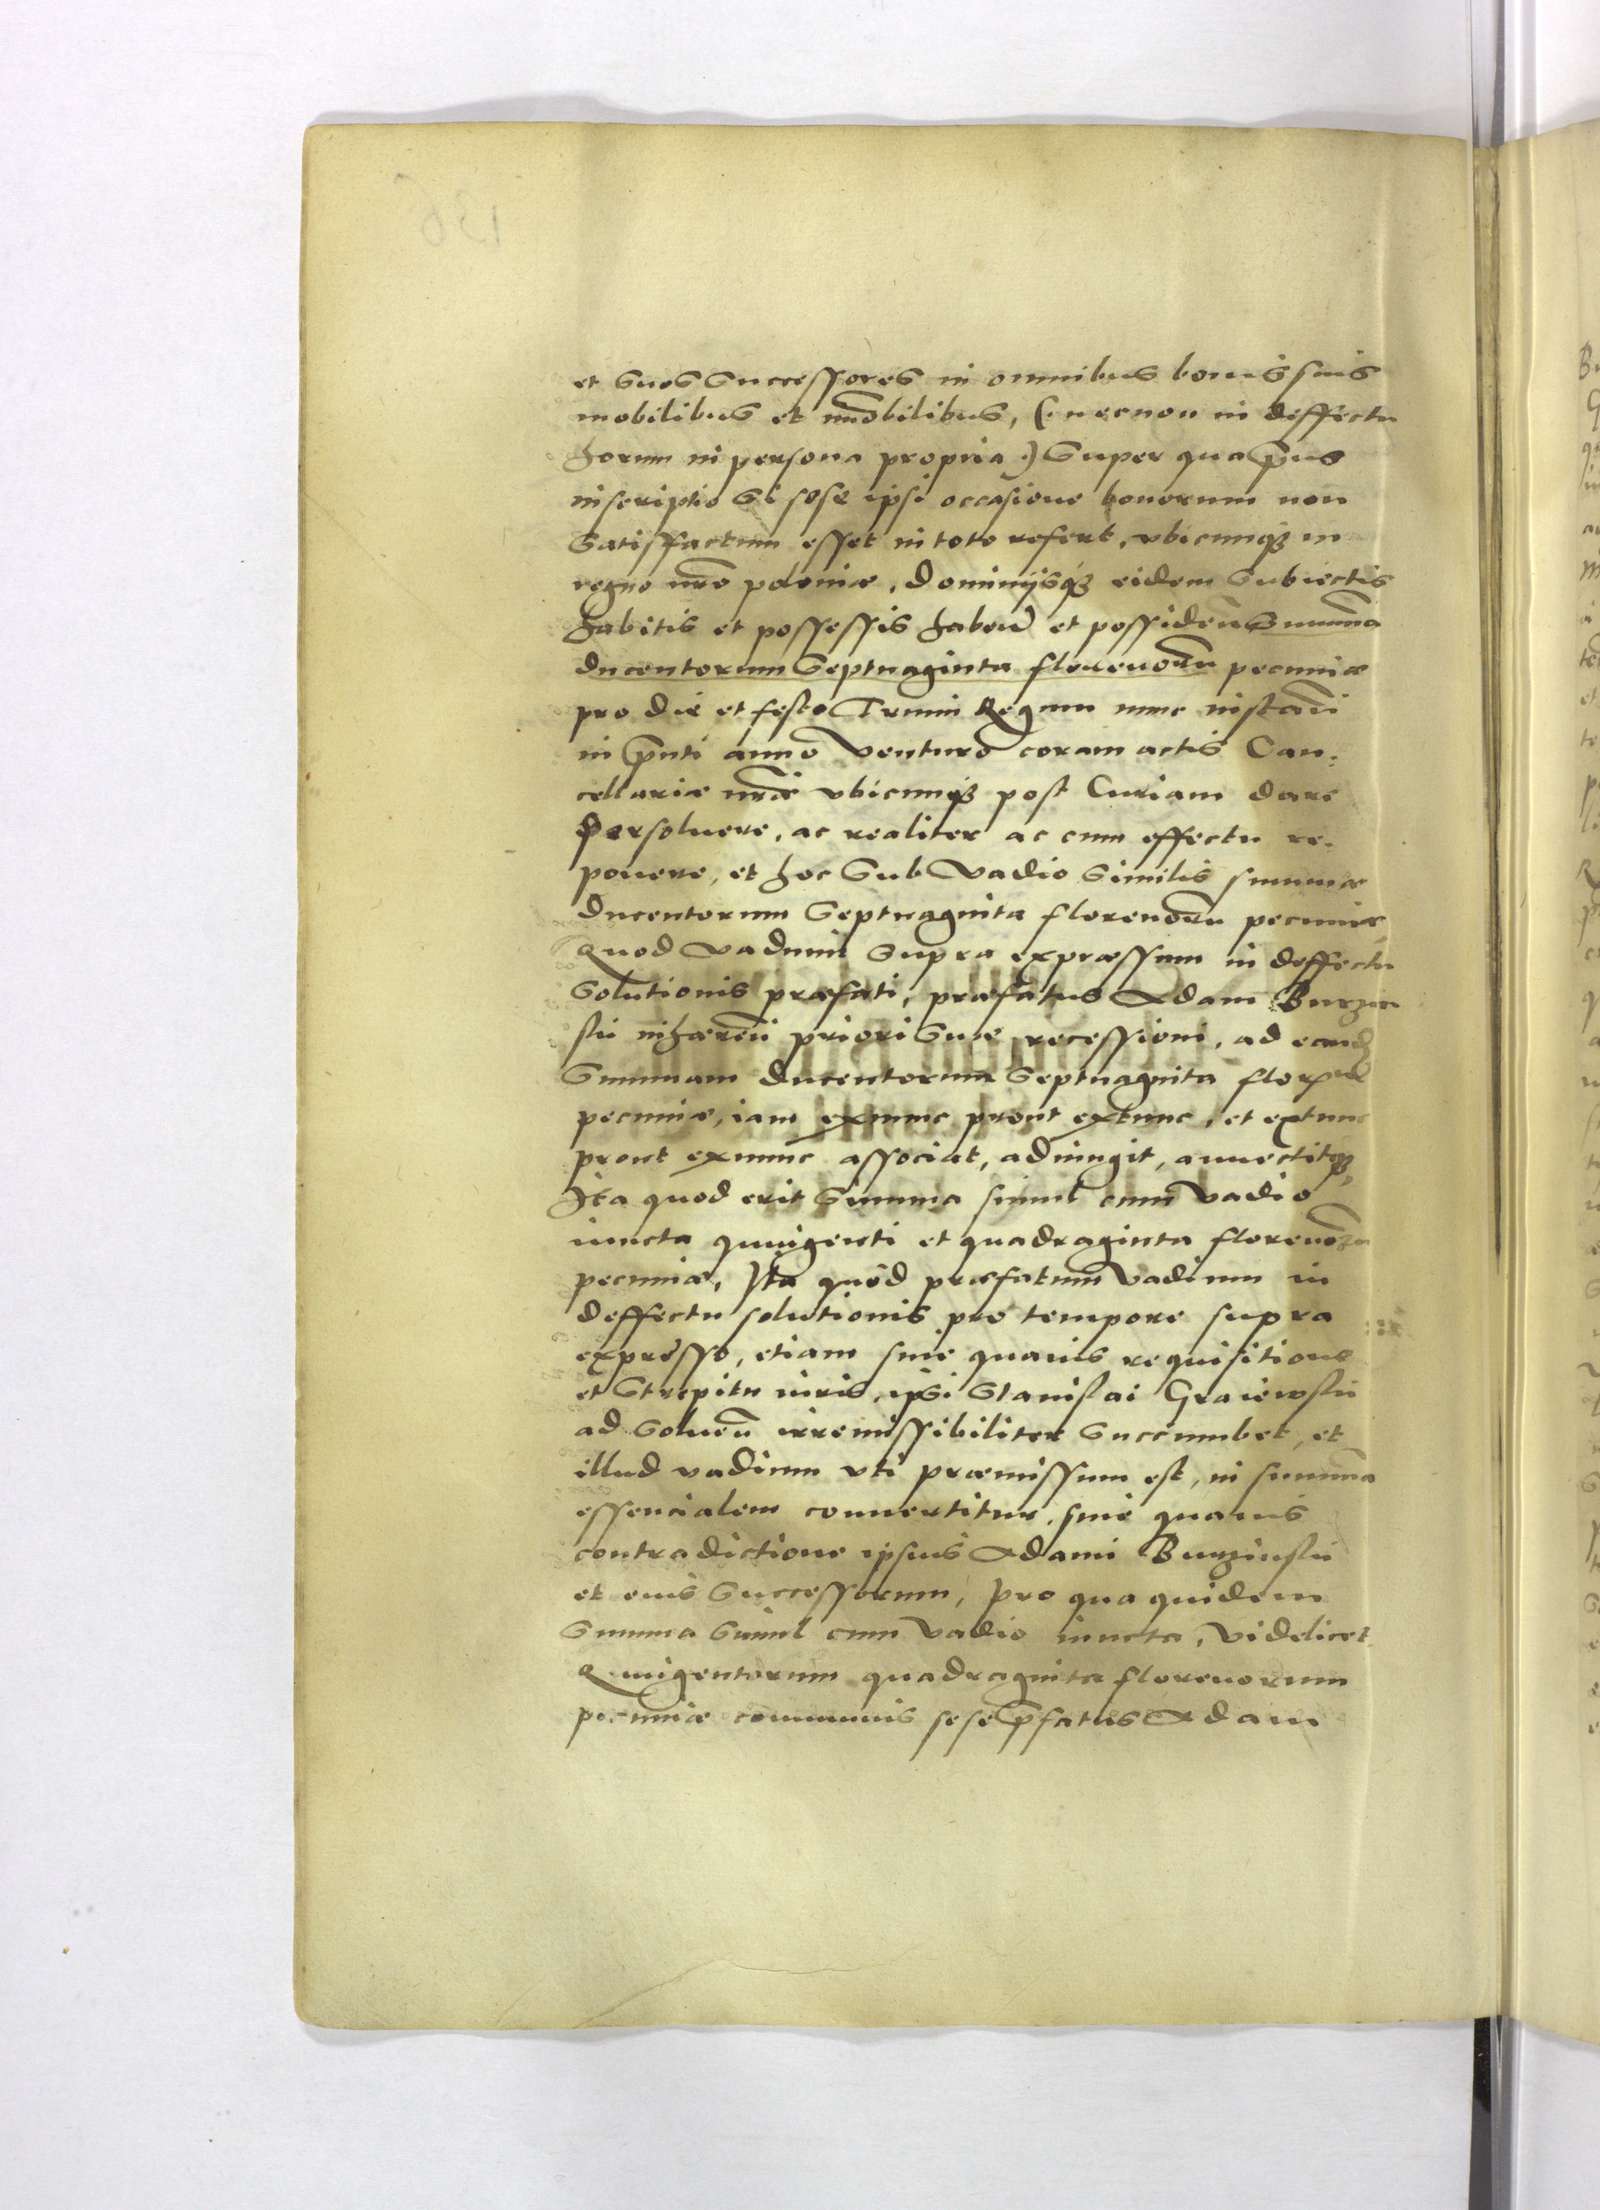 et suos successores in omnibus bonis suis
mobilibus et im̃obilibus, (: necnon in deffectu
horum in persona propria :) super qua p̃ns
inscriptio si sese ipsi occasione bonorum non
satisffactum esset in toto refert, vbicunqȝ in
regno nr̃o poloniæ, dominijsqȝ eidem subiectis
habitis et possessis haben̄ et possiden̄ summa
ducentorum septuaginta florenorũ pecuniæ
pro die et festo Trium Regum nunc instan̄
in p̃nti anno venturo coram actis Can:
cellariæ nr̃æ vbicunqȝ post Curiam dare
persoluere, ac realiter ac cum effectu re:
ponere, et hoc sub vadio similis summæ
ducentorum septuaginta florenorũ pecuniæ
Quod vadium supra expræssum in deffectu
solutionis præfati, præfatus Adam
inhæren̄ priori suæ recessioni, ad eand
summam ducentorum septuaginta
pecuniæ, iam exnunc prout extunc, et extunc
prout exnunc associat, adiungit, annectitqȝ,
Ita quod erit summa simul cum vadio
iuncta quingenti et quadraginta florenorũ
pecuniæ, Ita quod præfatum vadium in
deffectu solutionis pro tempore supra
expresso, etiam sine quauis requisitione
et strepitu iuris, ipsi Stanislai Graiewski
ad soluen̄ irremissibiliter succumbet, et
illud vadium vti præmissum est, in summã
essencialem conuertitur, sine quauis
contradictione ipsius Adami Burzinski
et eius successorum, pro qua quidem
summa simul cum vadio iuncta, videlicet
Quingentorum quadraginta florenorum
pecuniæ communis sese p̃fatus Adam